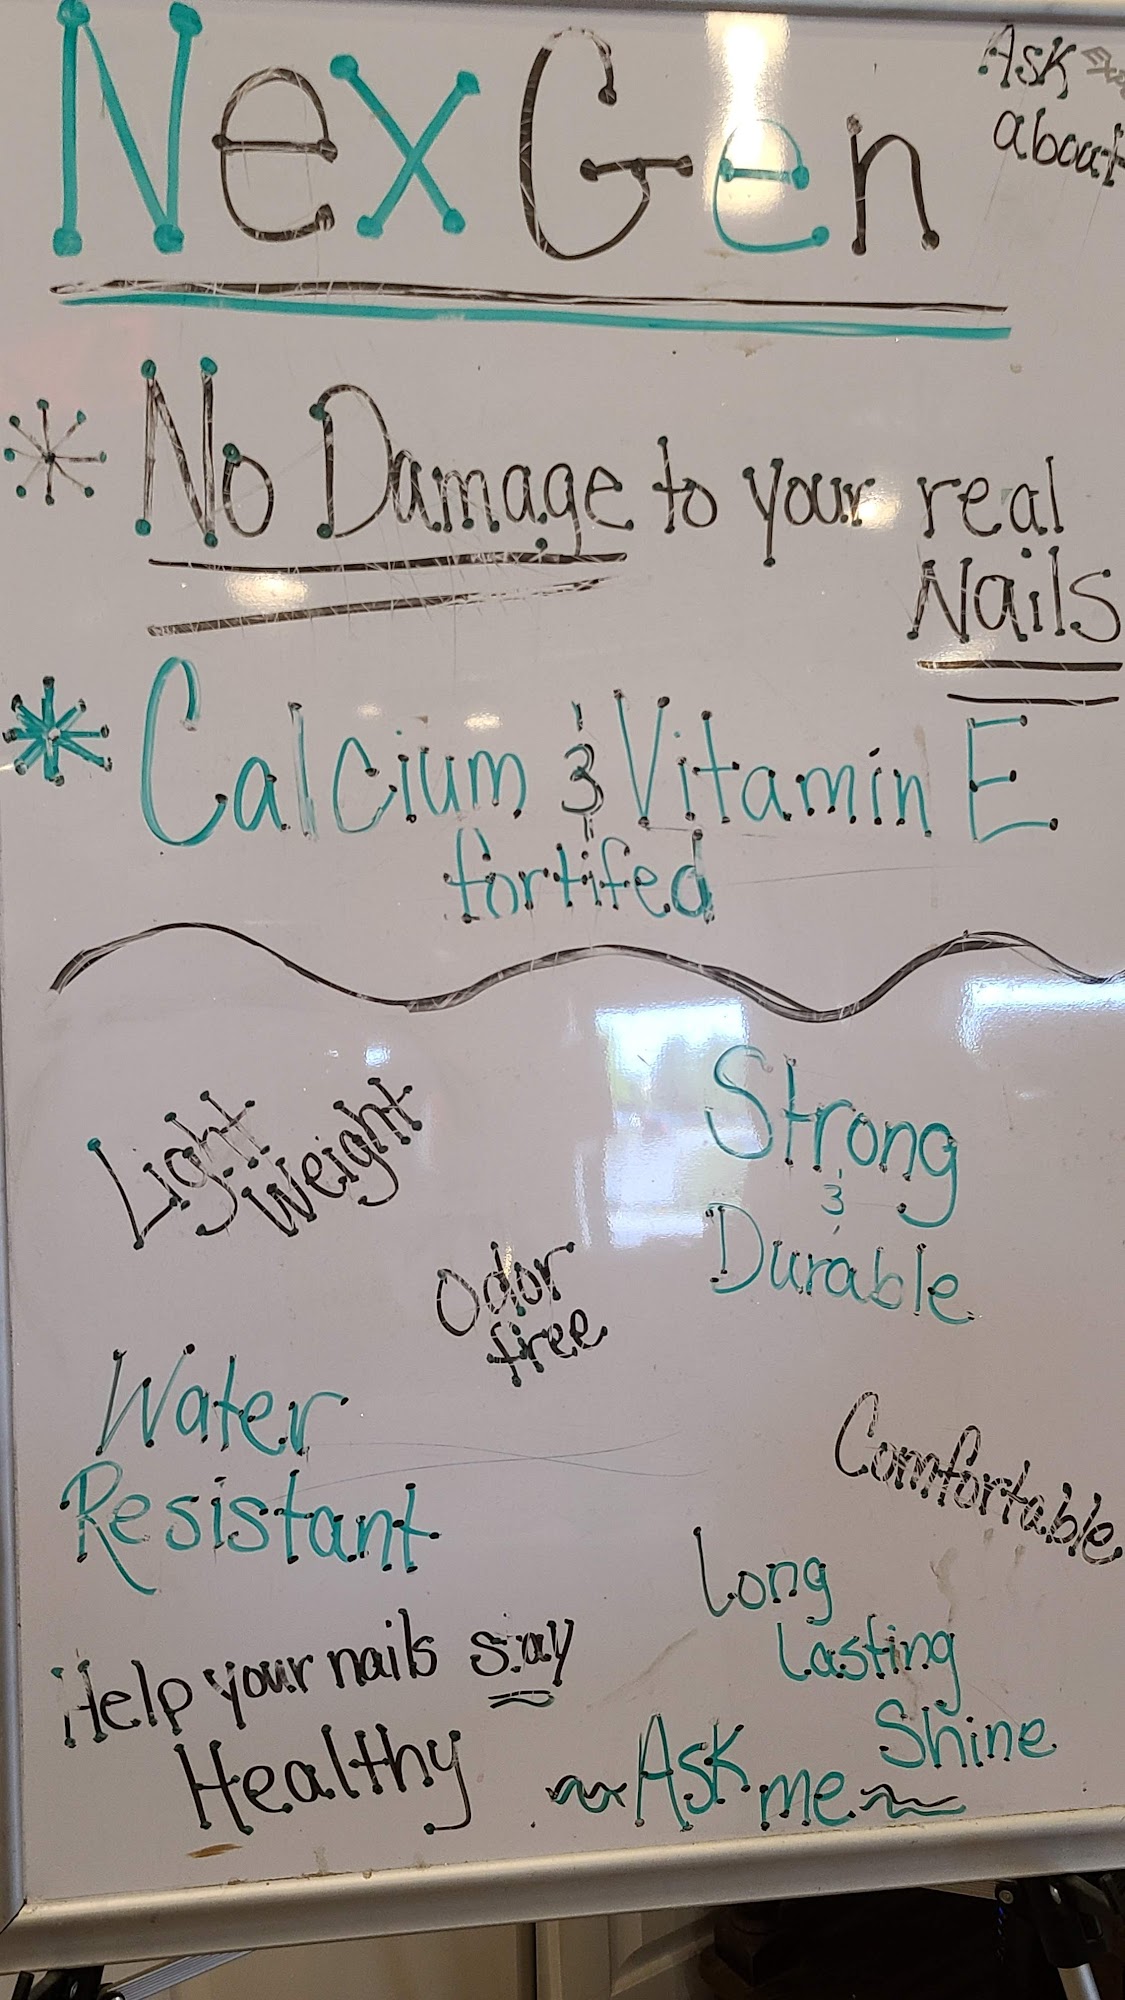 NexGen
Ask
about
* No Damage to your real
Nails
* Calcium & Vitamin E
fortifed
Light
Weight
Strong
&
Durable
Odor
free
Water
Resistant
Comfortable
Long
Lasting
Shine
Help your nails stay
Healthy
~Ask me~